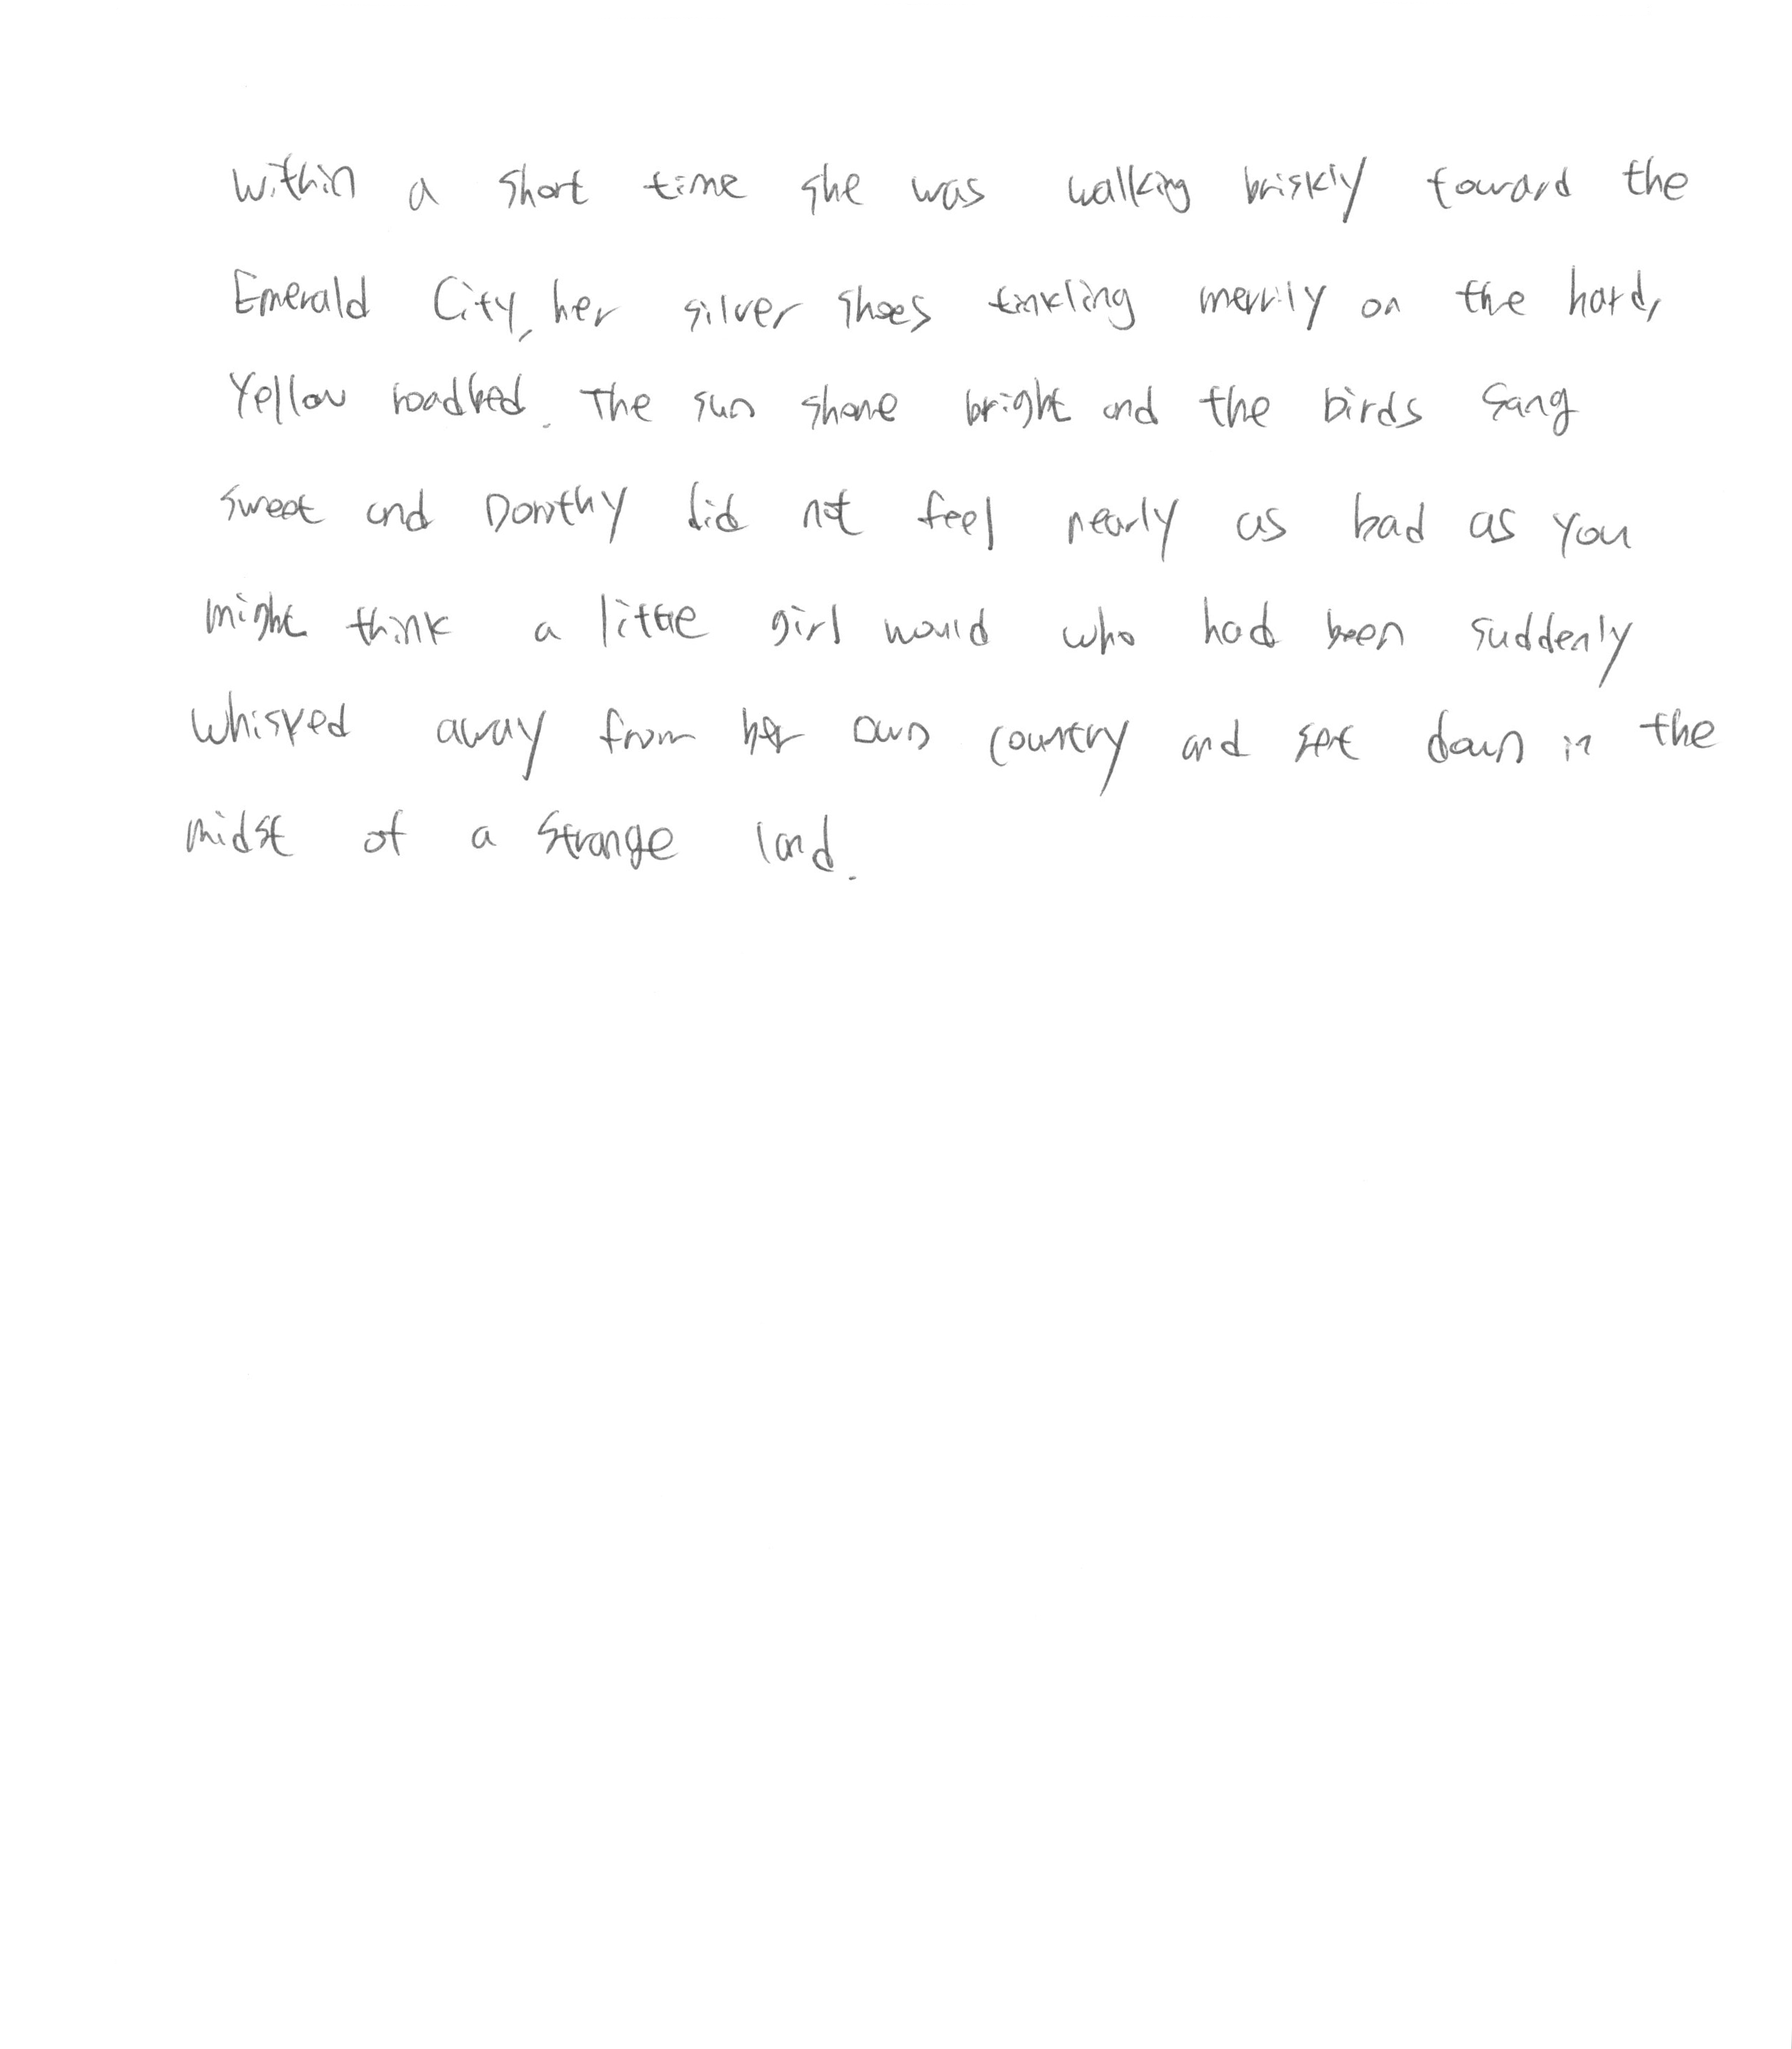 Within a short time she was walking briskly toward the
Emerald City, her silver shoes tinkling merrily on the hard,
Yellow roadbed. The sun shone bright and the birds sang
sweet and Dorothy did not feel nearly as bad as you
might think a little girl would who had been suddenly
whisked away from her own country and set down in the
midst of a strange land.